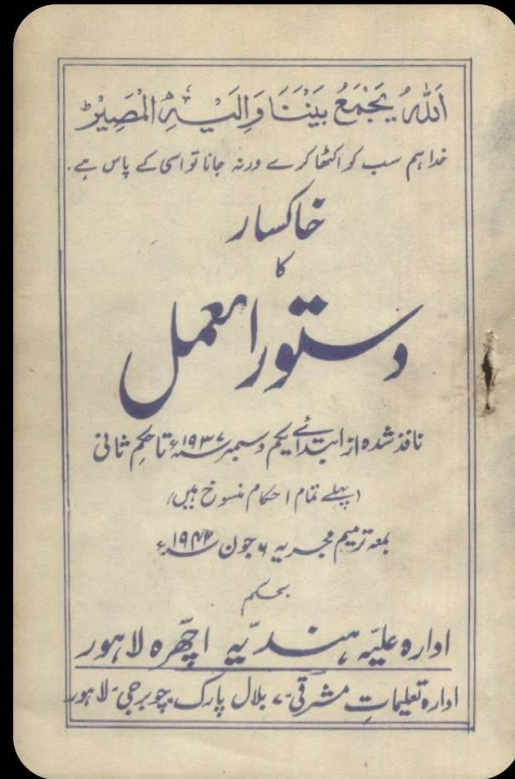 اَللّٰهُ يَجْمَعُ بَيْنَنَا وَاِلَيْهِ الْمَصِيْرُ
خدا ہم سب کو اکٹھا کرے ورنہ جانا تو اسی کے پاس ہے۔
خاکسار
کا
دستورالعمل
نافذ شدہ از ابتدائے یکم دسمبر ۱۹۳۷ء تا حکم ثانی
(پہلے تمام احکام منسوخ ہیں)
بمعہ ترمیم مجریہ ۶ جون ۱۹۴۲ء
بحکم
ادارہ علیّہ ہندیّہ اچھرہ لاہور
ادارہ تعلیمات مشرقی ۷ بلال پارک چوبرجی لاہور